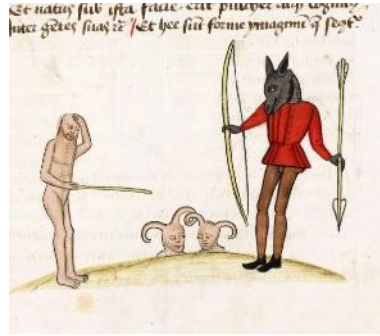 Et natus sub ista facie erit pulcher
inter gentes suas Et hee sunt forme ymaginum